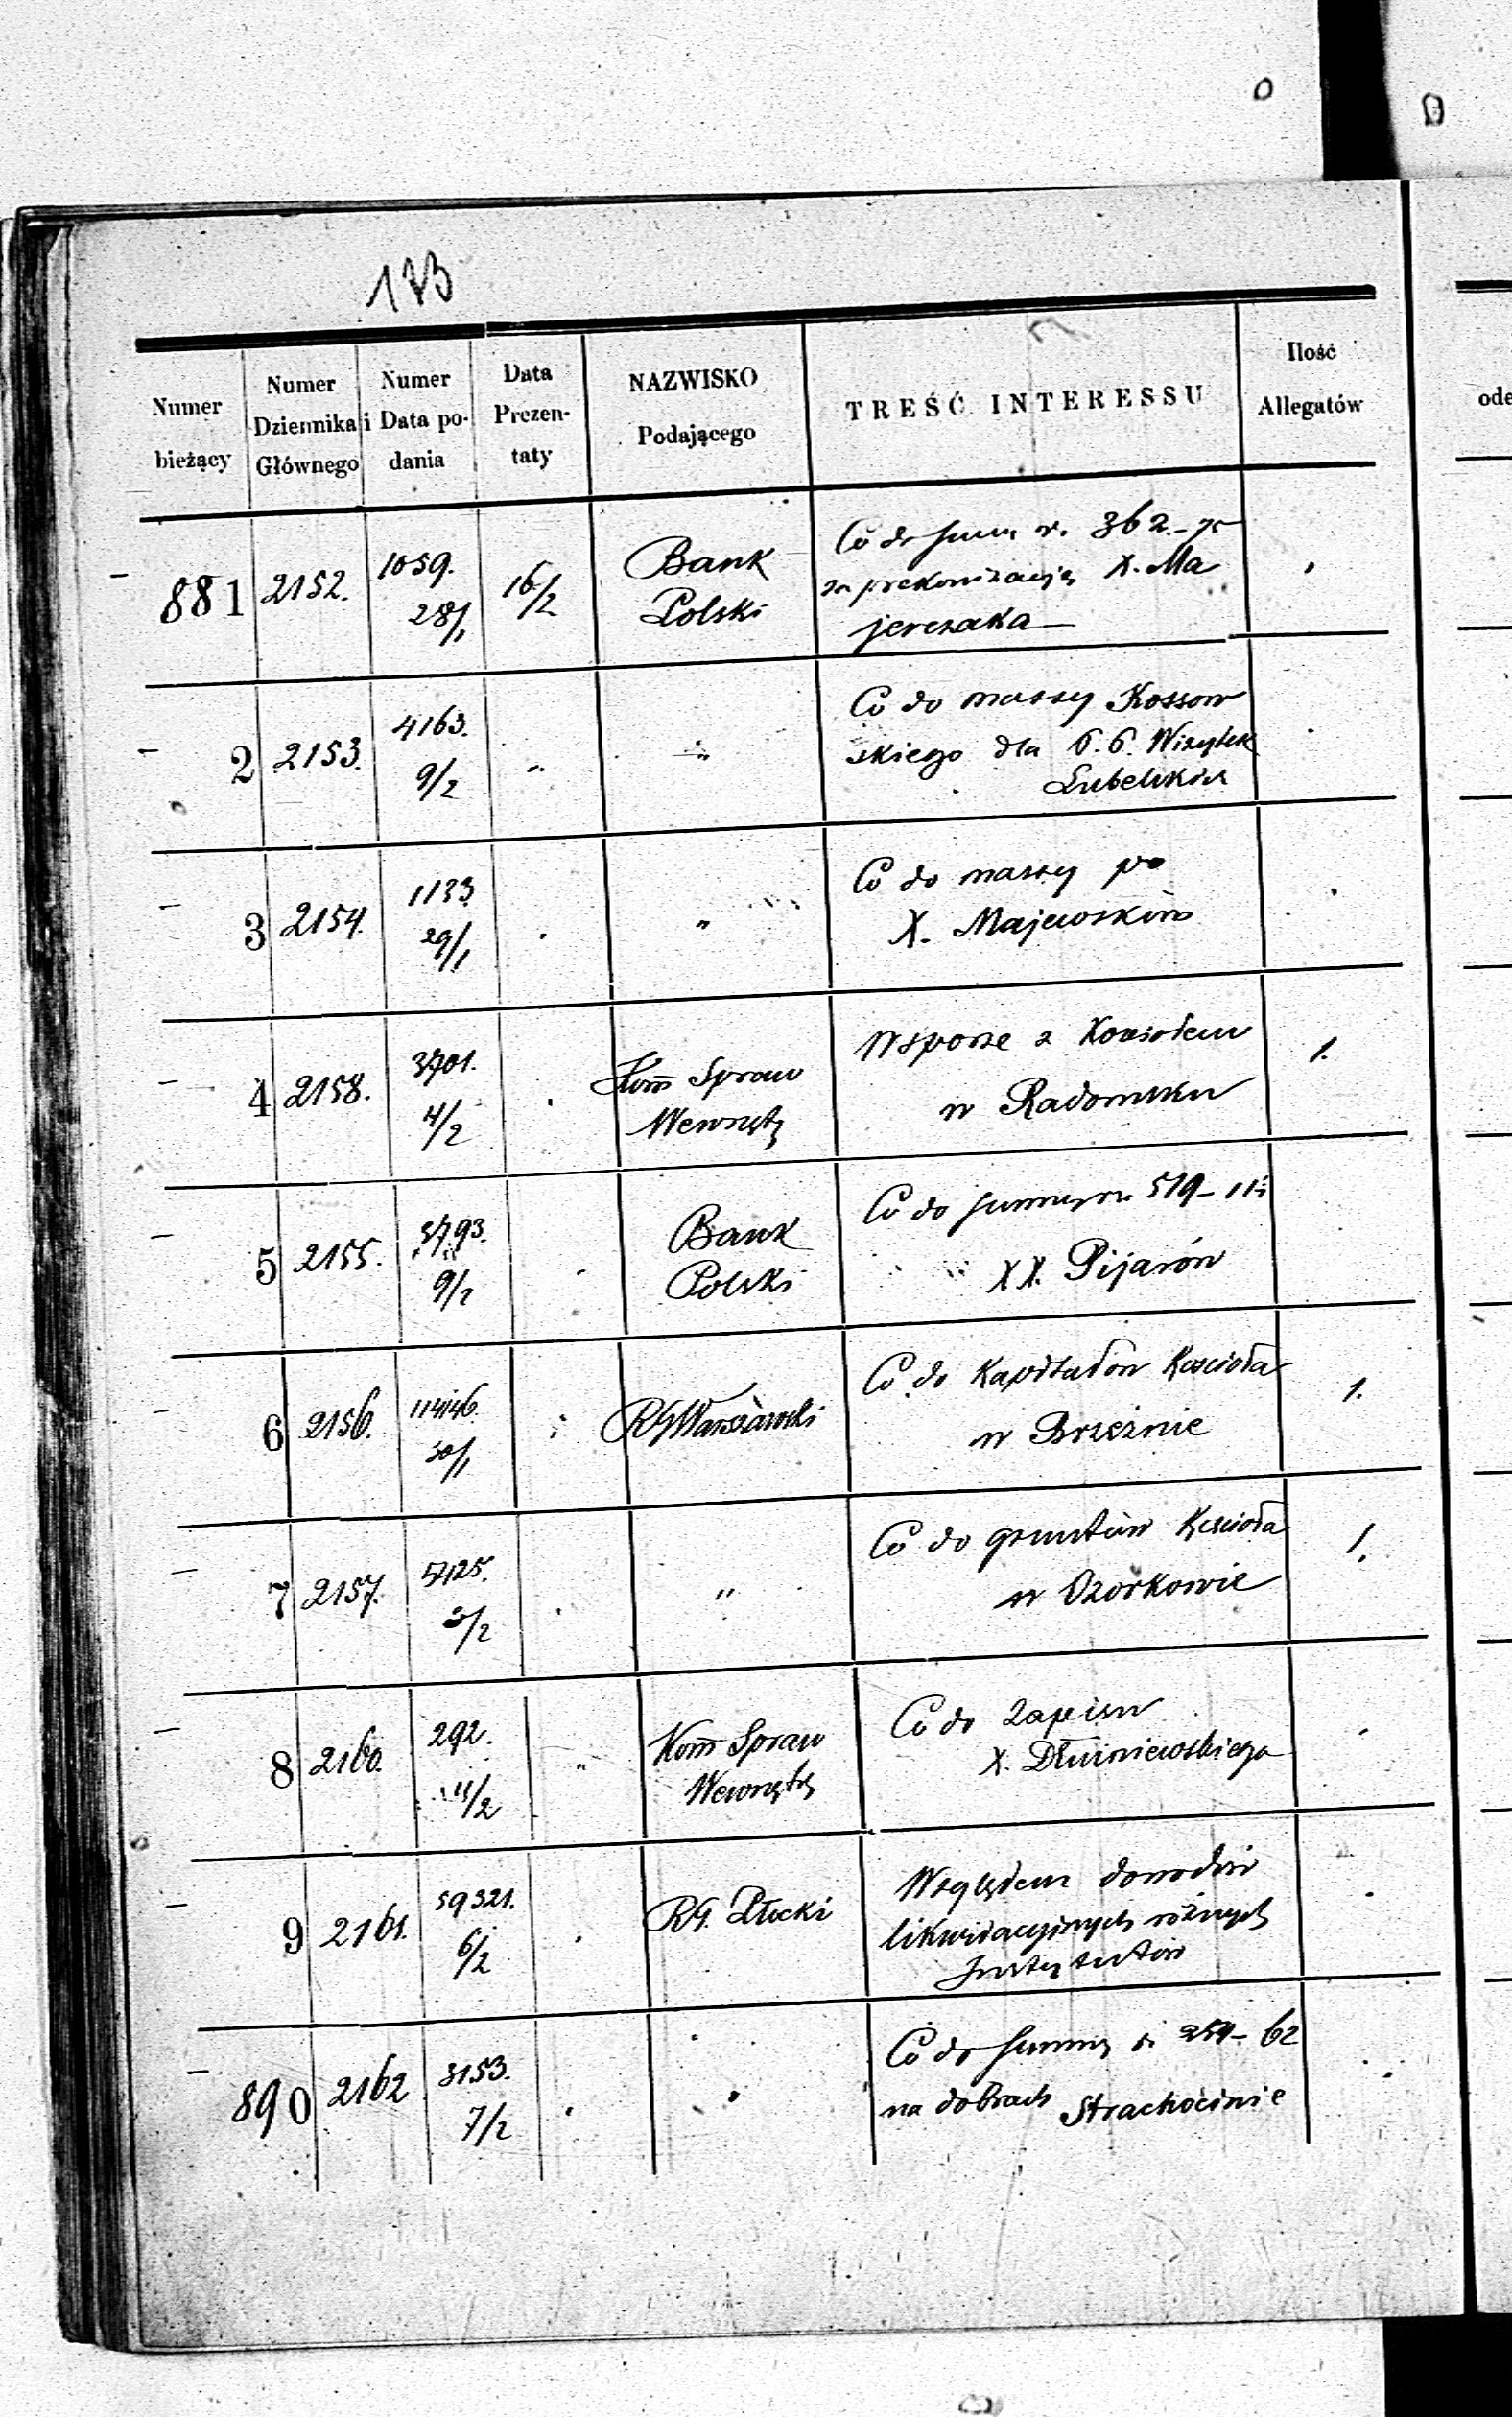 173
Numer bieżący
Numer Dziennika Głównego
Numer i Data podania
Data Prezentaty
NAZWISKO Podającego
TREŚĆ INTERESSU
Ilość Allegatów
881 2152. 1059. 28/1 16/2 Bank Polski
Co do summ r. 362.-
za prekonizacją X. Ma
jerczaka
2 2153. 4163. 9/2 " "
Co do massy Kossow
skiego dla Wizytek
Lubelskich
3 2154. 1133. 29/1 "
Co do massy po
X. Majewskim
4 2158. 3701. 4/2 Kom Spraw Wewnętr
W sporze z Koziołem
w Radomsku
1.
5 2155. 3793. 9/2 Bank Polski
Co do summy 519-11½
XX. Pijarów
6 2156. 114146. 30/1 RG Warszawski
Co do Kapitałów Kościoła
w Brzeźnie
1.
7 2157. 3/2 "
Co do gruntów Kościoła
w Ozorkowie
1.
8 2160. 292. 11/2 " Kom Spraw Wewnętr
Co do Zapisu
X. Dłużniewskiego
9 2161. 59321. 6/2 RG. Płocki
Względem dowodów
likwidacyjnych różnych
Instytutów
890 2162 3153. 7/2
Co do Summy 254-62
na dobrach Strachocinie